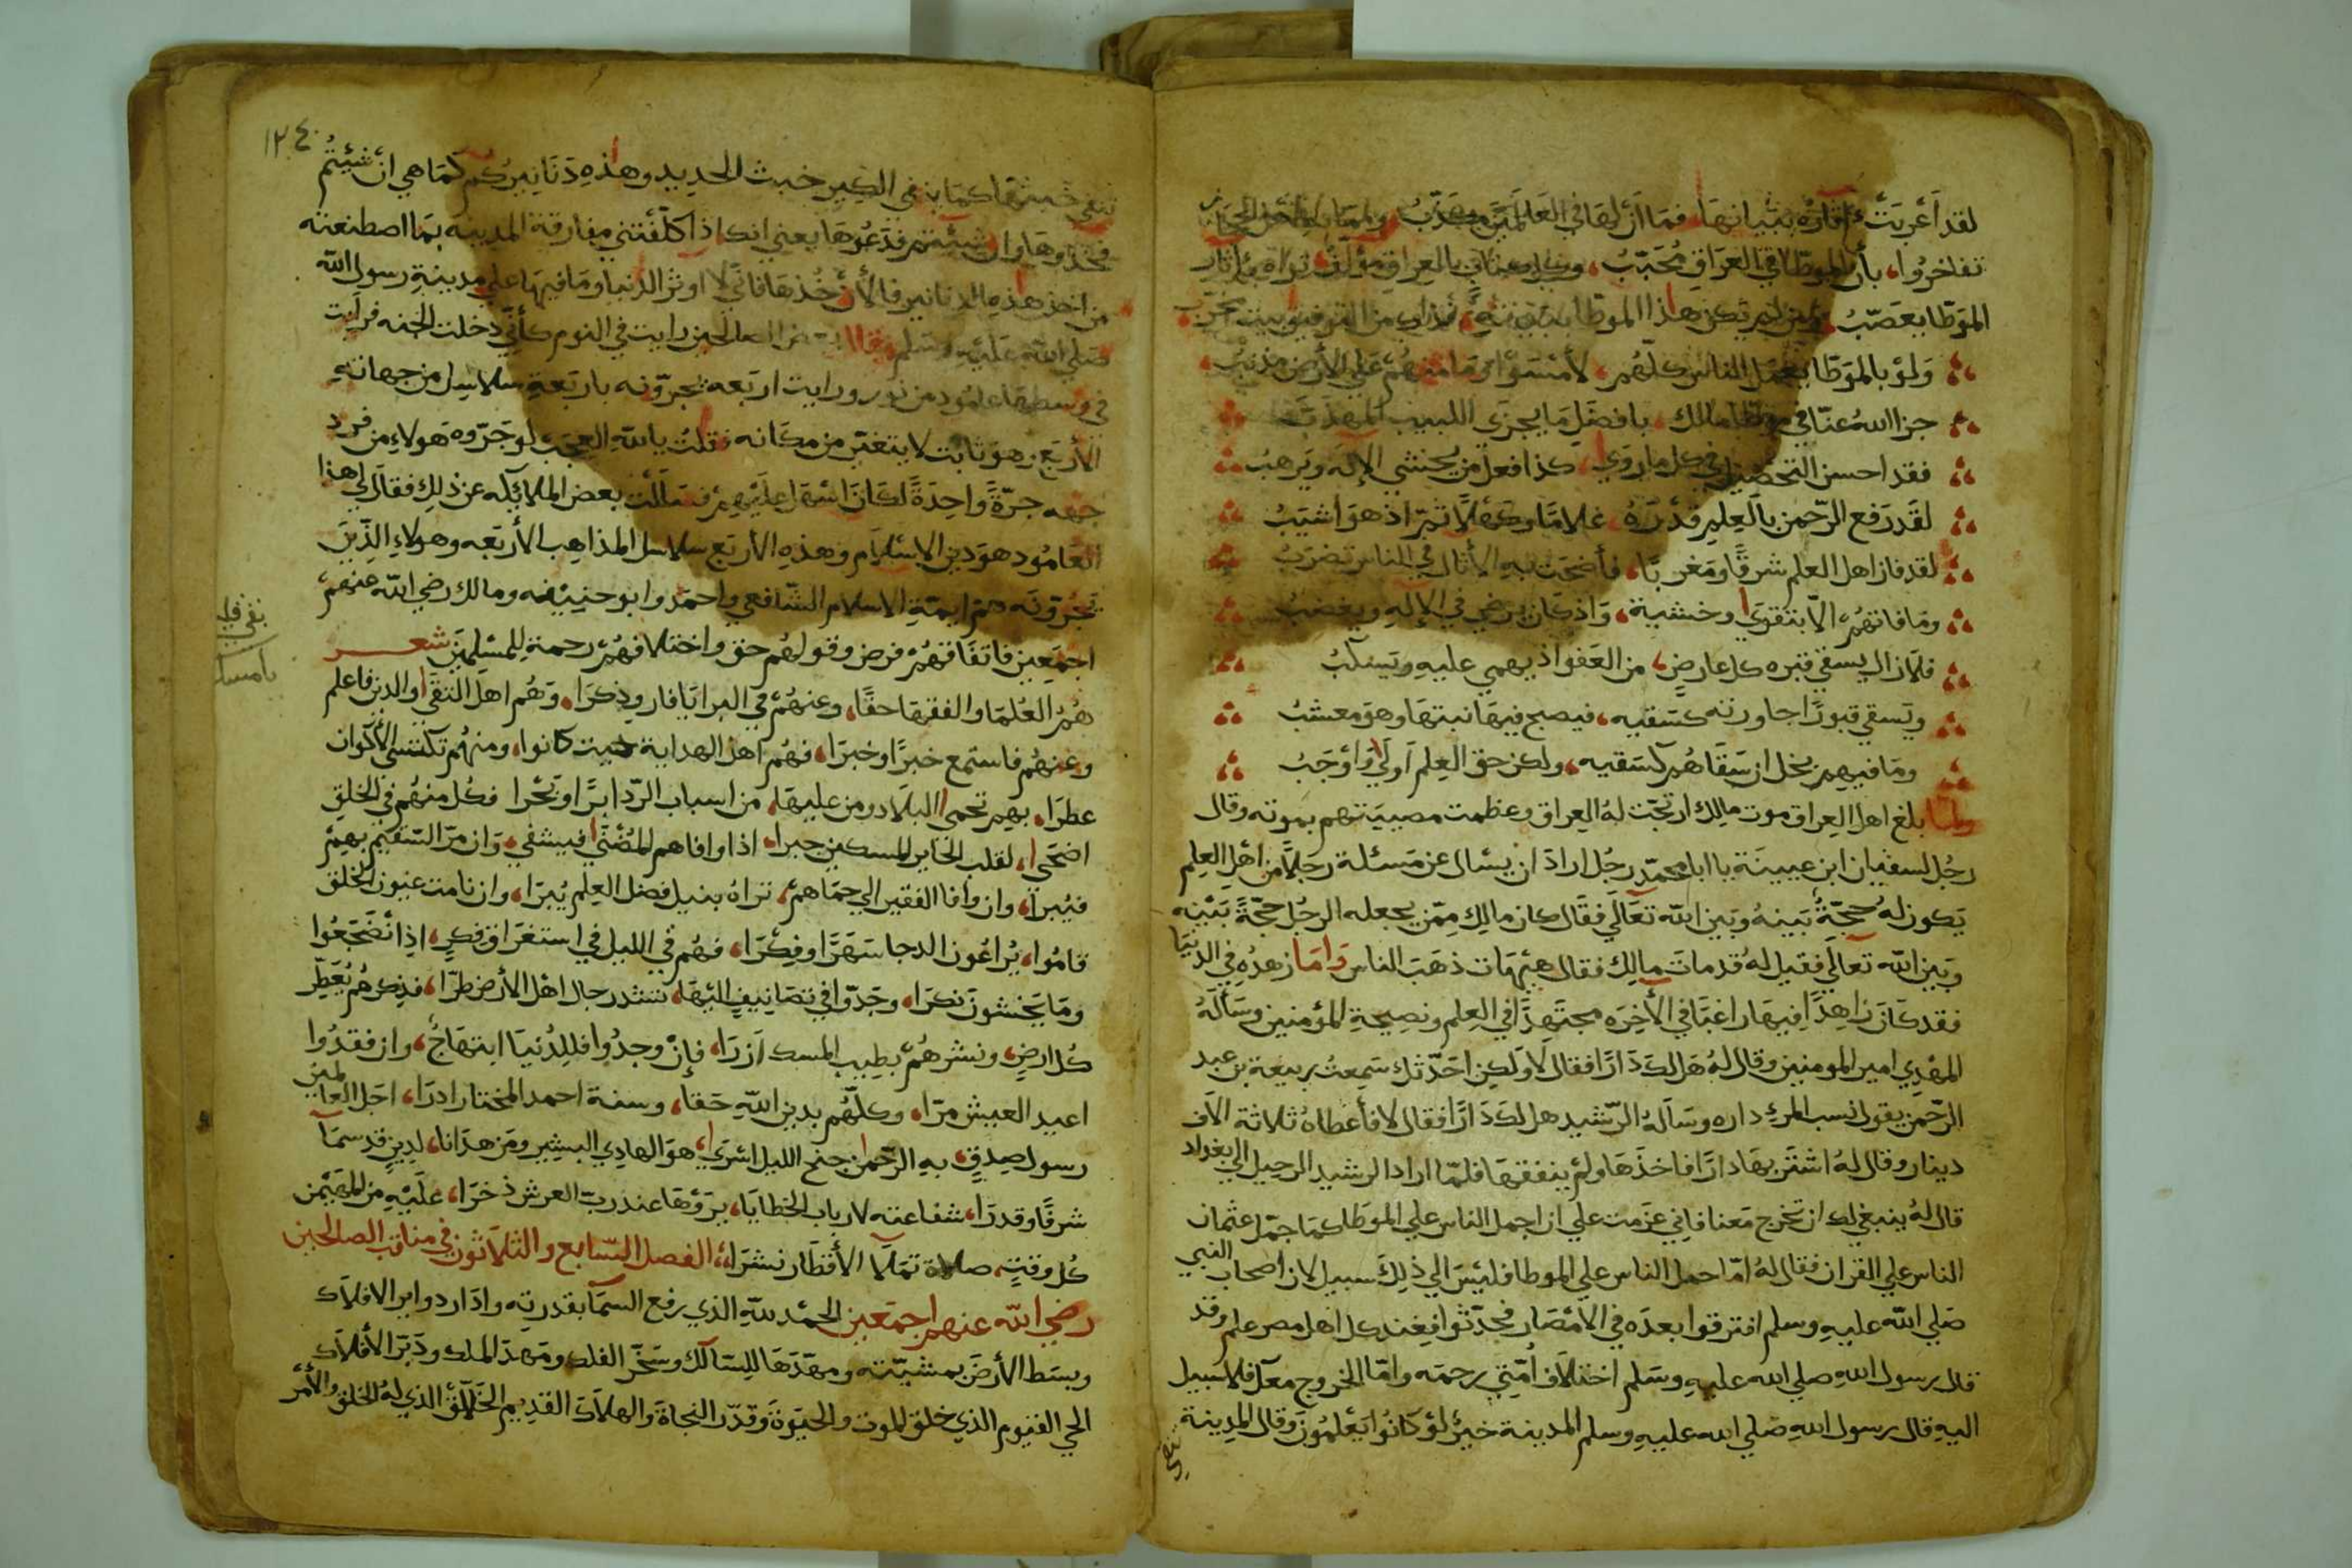 لقد أعربت آثاره ببيانها فما أن لها في العالمين مكذب ومما به اهل الحجاز
تفاخروا بأن الموطا في العراق محبب وكل كتاب بالعراق مؤلف تراه بآثار
الموطا يعصب ومن لم تكن هذا الموطا ببيته فذاك من التوفيق بيت مخرب
ولو بالموطا يعمل الناس كلهم لأمسوا وما منهم على الأرض مذنب
جزا الله عنا في موطا مالك بافضل ما يجزى اللبيب المهذب
فقد احسن التحصيل في كل ما روى كذا فعل من يخشي الإله ويرهب
لقد رفع الرحمن بالعلم قدره غلاما وكهلا ثم اذ هو اشيب
لقد فاز اهل العلم شرقا ومغربا فأضحت به الأمثال في الناس تضرب
وما فاتهم الا بتقوى وخشية واذ كان يرضى في الإله ويغضب
فلا زال يسقي قبره كل عارض من العفو اذ يهمي عليه ويسكب
ويسقي قبورا جاورته كسقيه فيصبح فيها نبتها وهو معشب
وما فيهم بخل ان سقاهم كسقيه ولكن حق العلم أولى وأوجب
ولما بلغ اهل العراق موت مالك ارتجت له العراق وعظمت مصيبتهم بموته وقال
رجل لسفيان ابن عيينة يا ابا محمد رجل اراد ان يسال عن مسئلة رجلا من اهل العلم
يكون له حجة بينه وبين الله تعالى فقال كان مالك ممن يجعله الرجل حجة بينه
وبين الله تعالى فقيل له قد مات مالك فقال هيهات ذهب الناس واما زهده في الدنيا
فقد كان زاهدا فيها راغبا في الأخره مجتهدا في العلم ونصيحة المؤمنين وسأله
المهدي امير المومنين وقال له هل لك دارا فقال لا ولكن احدثك سمعت ربيعة بن عبد
الرحمن يقول نسب المرء داره وسأله الرشيد هل لك دارا فقال لا فأعطاه ثلاثة الاف
دينار وقال له اشتر بها دارا فاخذها ولم ينفقها فلما اراد الرشيد الرحيل الي بغداد
قال له ينبغي لك ان تخرج معنا فاني عزمت علي ان احمل الناس علي الموطا كما حمل عثمان
الناس علي القران فقال له اما حمل الناس علي الموطا فليس الي ذلك سبيل لان اصحاب النبي
صلي الله عليه وسلم افترقوا بعده في الأمصار فحدثوا فعند كل اهل مصر علم وقد
قال رسول الله صلي الله عليه وسلم اختلاف أمتي رحمه واما الخروج معك فلا سبيل
اليه قال رسول الله صلي الله عليه وسلم المدينة خير لو كانوا يعلمون وقال المدينة
تنفي
١٢٤
تنفي خبثها كما ينفي الكير خبث الحديد وهذه دنانيركم كما هي ان شئتم
فخذوها وان شئتم فدعوها يعني انك اذا كلفتني مفارقة المدينه بما اصطنعته
من اخذ هذه الدنانير فالأن خذها فاني لا اوثر الدنيا وما فيها علي مدينة رسول الله
صلي الله عليه وسلم وقال بعض الصالحين رايت في النوم كأني دخلت الجنه فرايت
في وسطها عامود من نور ورايت اربعه يجرونه باربعة سلاسل من جهاته
الأربع وهو ثابت لا يتغير من مكانه فقلت يالله العجب لو جروه هولاء من فرد
جهه جرة واحدة لكان اسهل عليهم فسألت بعض الملائكه عن ذلك فقال لي هذا
العامود هو دين الاسلام وهذه الأربع سلاسل المذاهب الأربعه وهولاء الذين
يجرونه هم ايمة الاسلام الشافعي واحمد وابو حنيفه ومالك رضي الله عنهم
اجمعين فاتفاقهم فرض وقولهم حق واختلافهم رحمة للمسلمين شعر
هم العلما والفقها حقا وعنهم في البرايا فارو ذكرا وهم اهل التقى والدين فاعلم
وعنهم فاستمع خبرا وخبرا فهم اهل الهداية حيث كانوا ومنهم تكتسي الأكوان
عطرا بهم تحمى البلاد ومن عليها من اسباب الردا برا وبحرا فكل منهم في الخلق
اضحى لقلب الحاير المسكين جبرا اذا وافاهم المضنى فيشفي وان مر السقيم بهم
فيبرا وان وافا الفقير الي حماهم تراه بنيل فضل العلم يبرا وان نامت عيون الخلق
قاموا يراعون الدجا سهرا وفكرا فهم في الليل في استغراق فكر اذا انضجعوا
وما يخشون نكرا وجدوا في تصانيف اليها تشد رجال اهل الأرض طرا فذكرهم يعطر
كل ارض ونشرهم بطيب المسك ازرا فإن وجدوا فللدنيا ابتهاج وان فقدوا
اعيد العيش مرا وكلهم بدين الله حقا وسنة احمد المختار ادرا اجل العالمين
رسول صدق به الرحمن جنح الليل اسرى هو الهادي البشير ومن هدانا لدين قد سما
شرقا وقدرا شفاعته لارباب الخطايا يرؤها عند رب العرش ذخرا عليه من المهيمن
كل وقت صلاة تملا الأقطار نشرا الفصل السابع والثلاثون في مناقب الصالحين
رضي الله عنهم اجمعين الحمد لله الذي رفع السما بقدرته وادار دواير الافلاك
وبسط الأرض بمشيته ومهدها للسالك وسخر الفلك ومهد الملك ودبر الأفلاك
الحي القيوم الذي خلق الموت والحيوة وقدر النجاة والهلاك القديم الخلاق الذي له الخلق والأمر